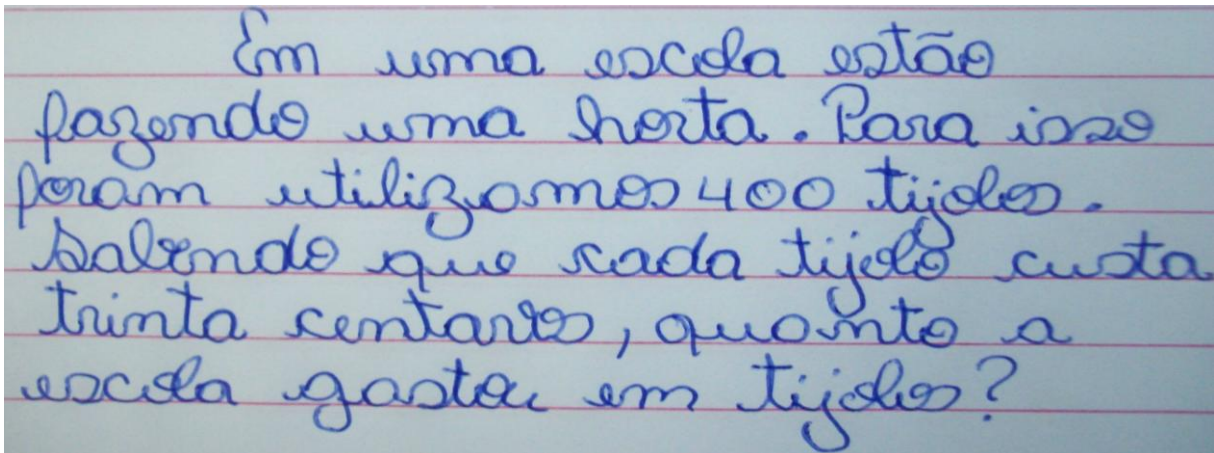 Em uma escola estão
fazendo uma horta. Para isso
foram utilizamos 400 tijolos.
Sabendo que cada tijolo custa
trinta centavos, quanto a
escola gastou em tijolos?